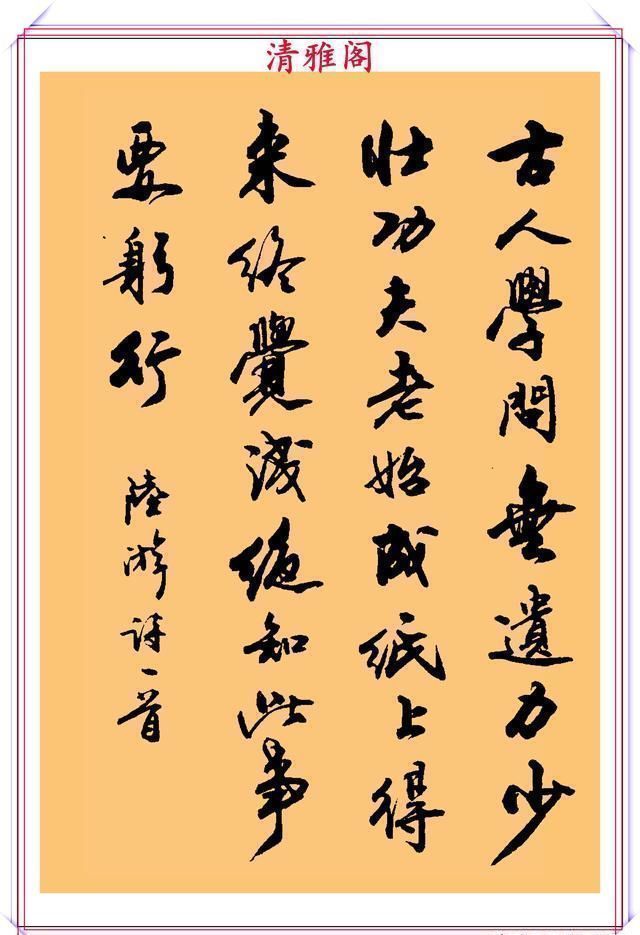 清雅阁
古人學問無遺力少
壯功夫老始成紙上得
来终覺浅絶知此事
要躬行
陸游诗一首